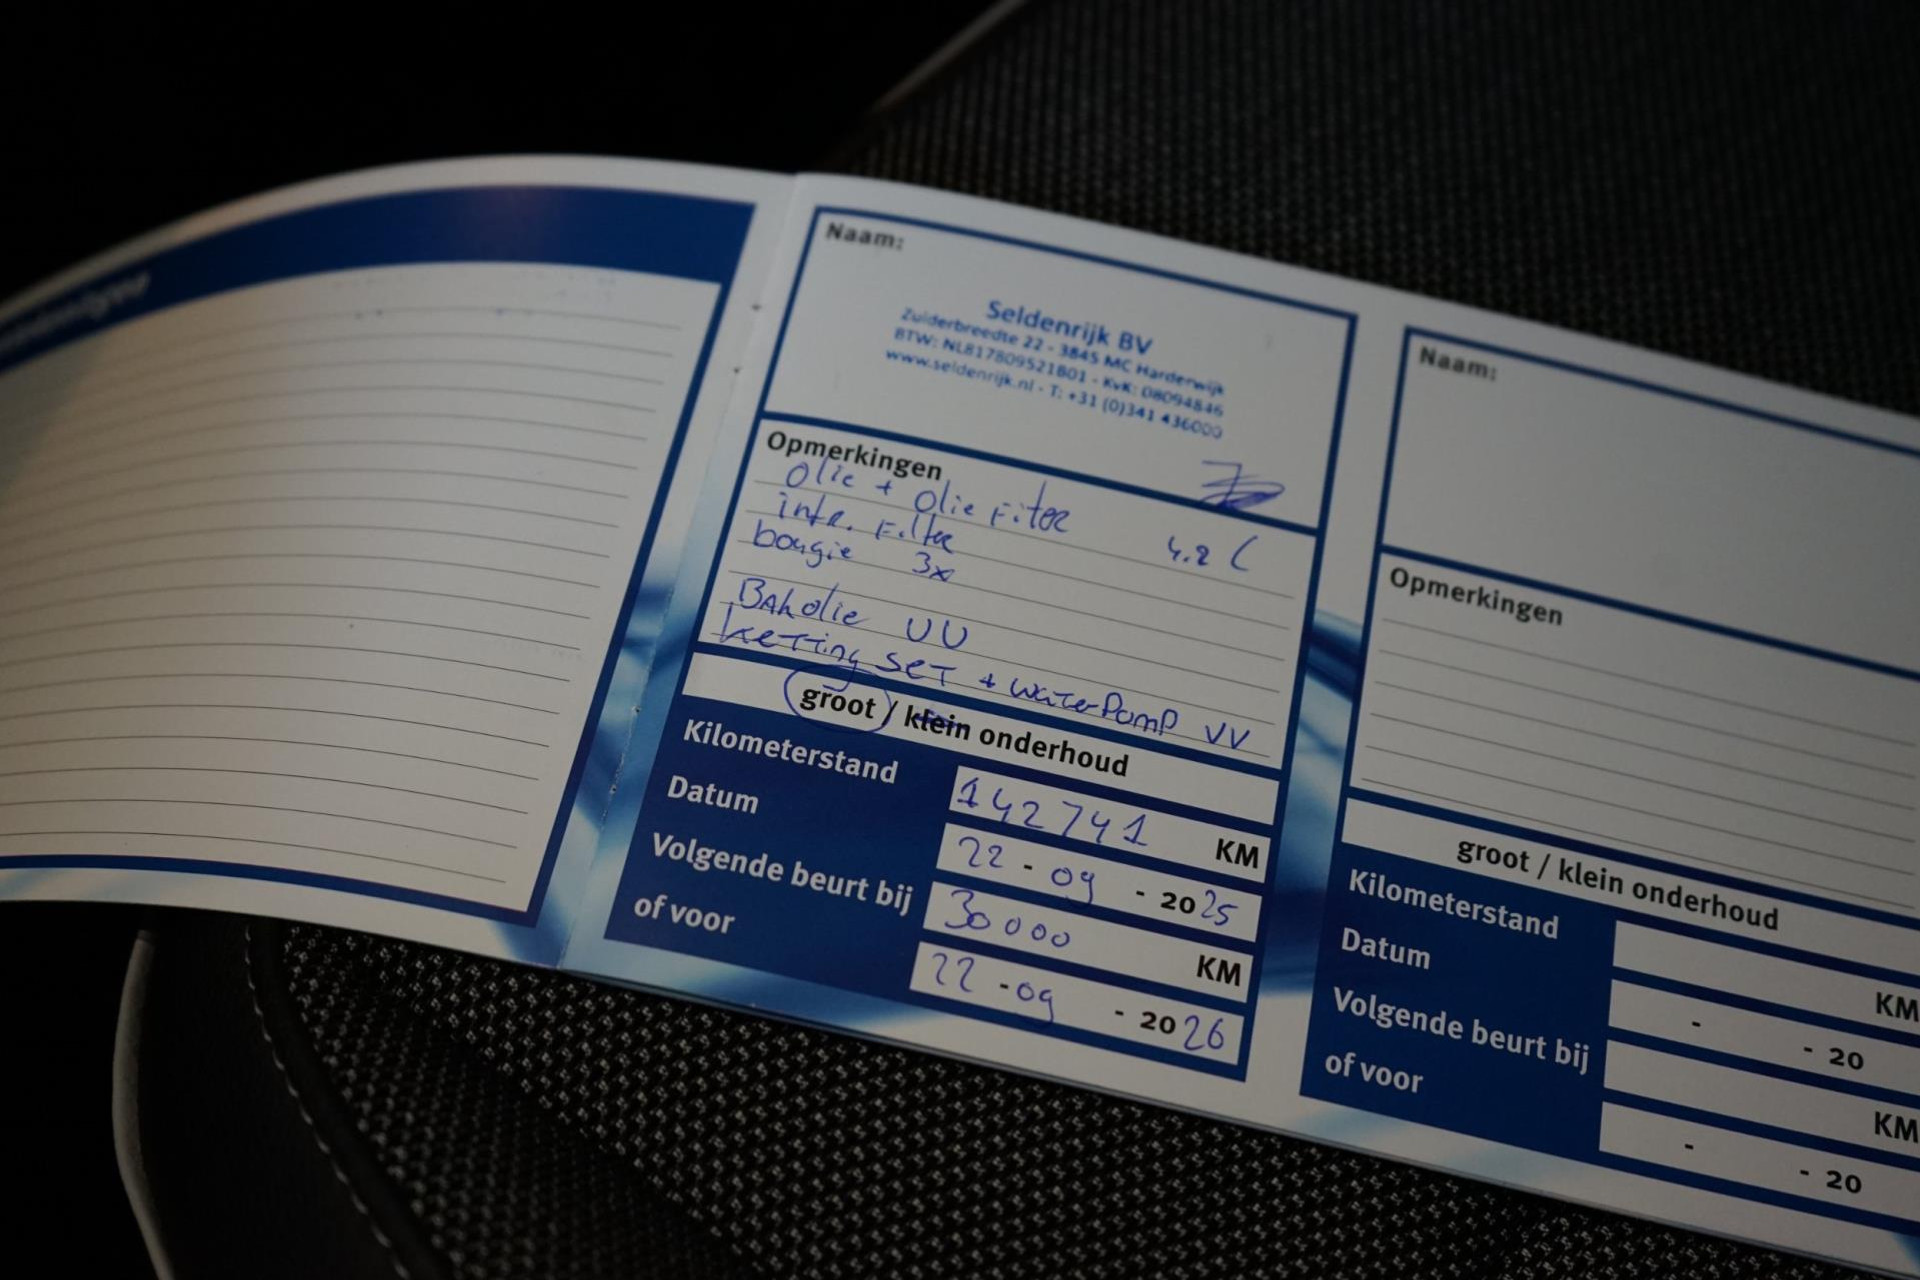 Naam:
Seldenrijk BV
Zuiderbreedte 22 - 3845 MC Harderwijk
BTW: NL817809521B01 - KvK: 08094846
www.seldenrijk.nl - T: +31 (0)341 436000
Opmerkingen
Olie + Olie Filter 4.2 L
intr. Filter
bougie 3x
BAKolie VV
Ketting SET + WaterPomp VV
groot / klein onderhoud
Kilometerstand 142741 KM
Datum 22 - 09 - 2025
Volgende beurt bij 30000 KM
of voor 22 - 09 - 2026
Naam:
Opmerkingen
groot / klein onderhoud
Kilometerstand KM
Datum - - 20
Volgende beurt bij KM
of voor - - 20